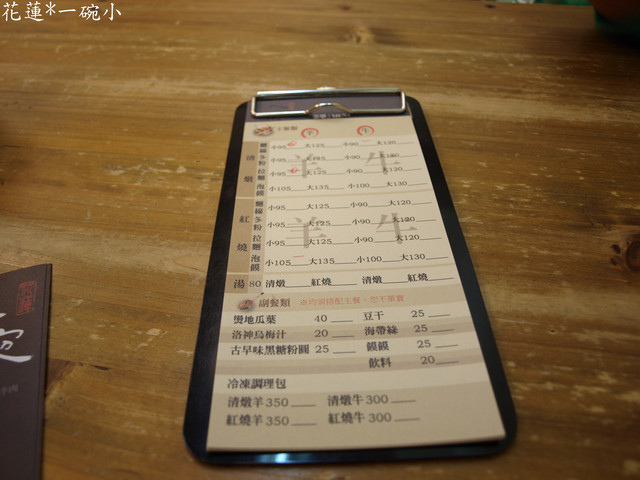 花蓮*一碗小
主餐類
羊 牛
清燉
麵線 小95 大125 小90 大120
冬粉 小95 大125 小90 大120
拉麵 小95 大125 小90 大120
泡饃 小105 大135 小100 大130
羊 牛
紅燒
麵線 小95 大125 小90 大120
冬粉 小95 大125 小90 大120
拉麵 小95 大125 小90 大120
泡饃 小105 大135 小100 大130
湯 80 清燉 紅燒 清燉 紅燒
副餐類 ※均須搭配主餐、恕不單賣
燙地瓜葉 40 豆干 25
洛神烏梅汁 20 海帶絲 25
古早味黑糖粉圓 25 饃饃 25
飲料 20
冷凍調理包
清燉羊350 清燉牛300
紅燒羊350 紅燒牛300